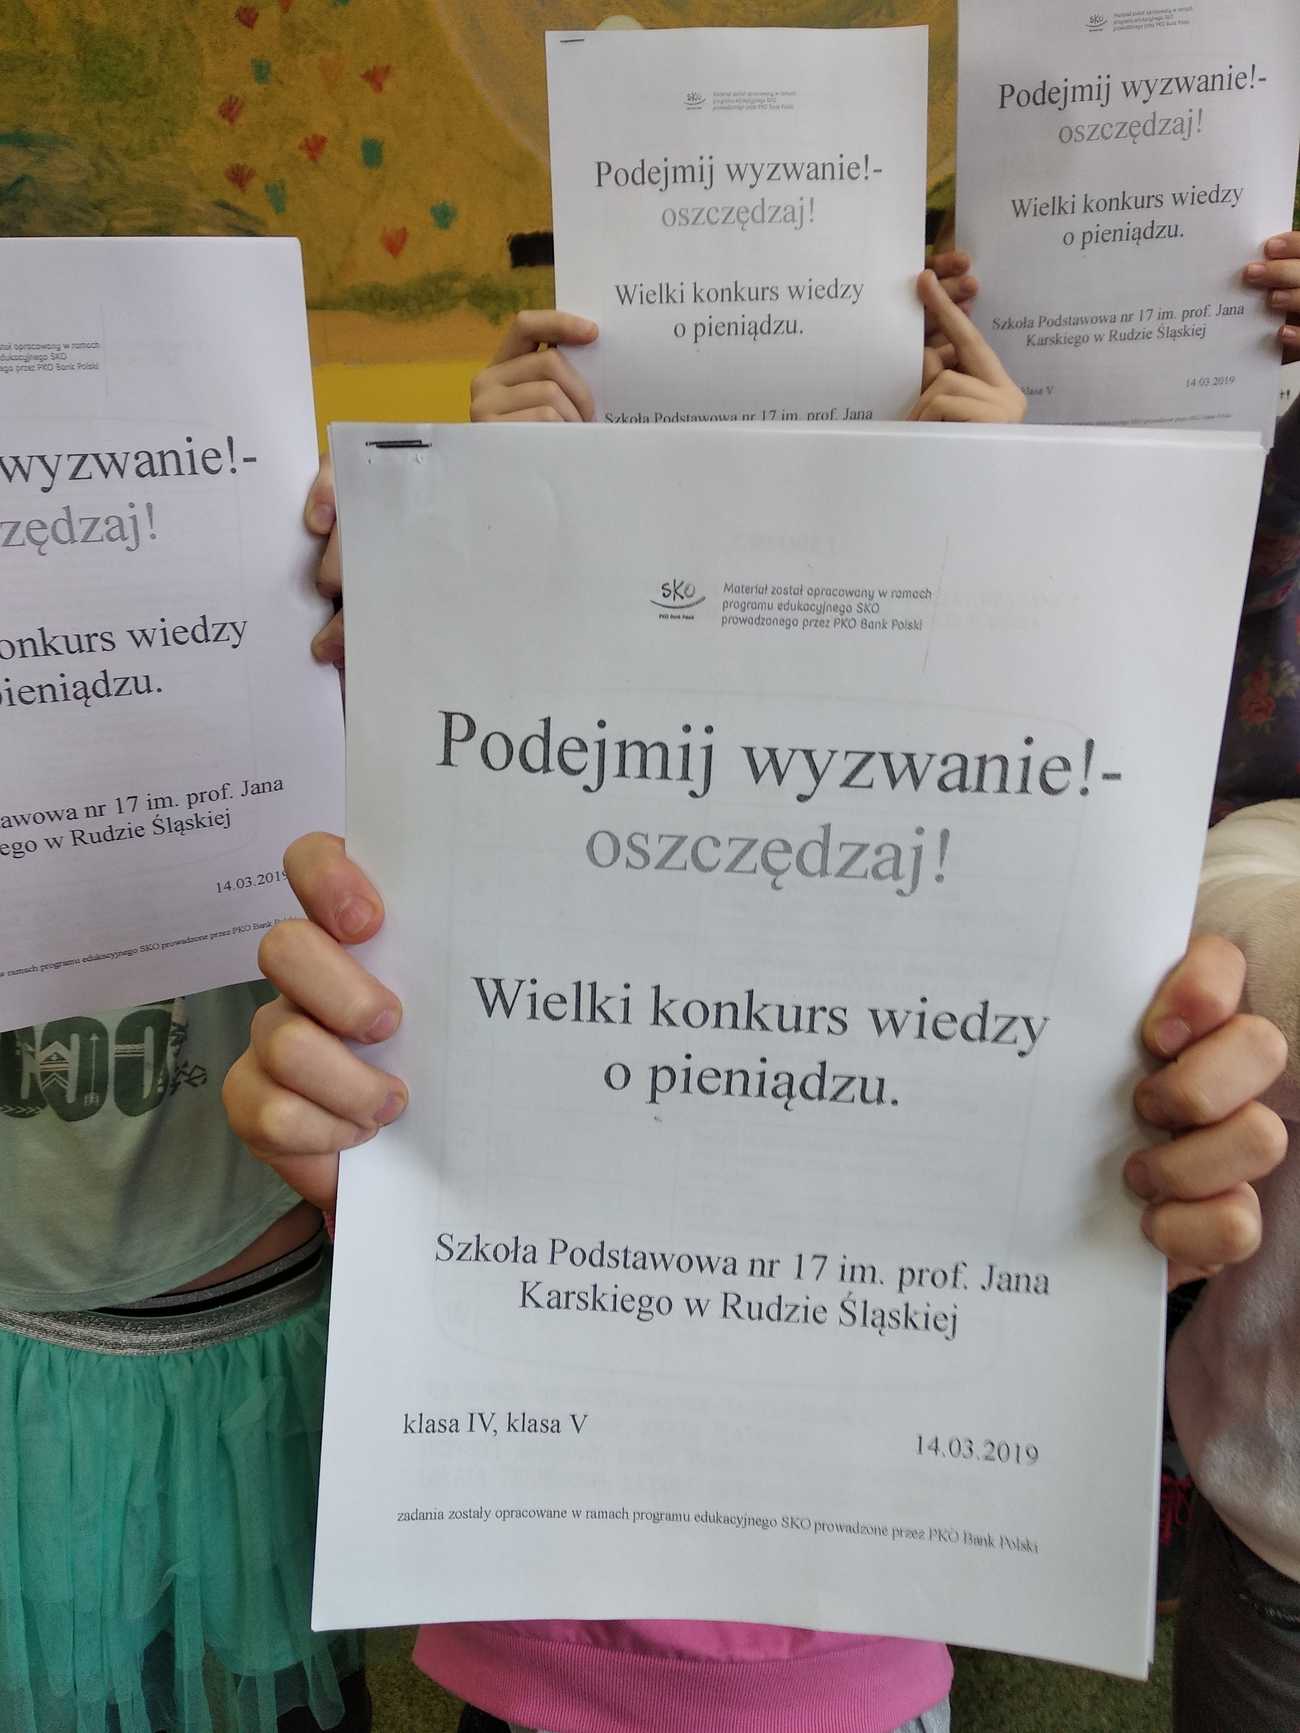 Materiał został opracowany w ramach
programu edukacyjnego SKO
prowadzonego przez PKO Bank Polski
Podejmij wyzwanie!-
oszczędzaj!
Wielki konkurs wiedzy
o pieniądzu.
Szkoła Podstawowa nr 17 im. prof. Jana
Materiał został opracowany w ramach
programu edukacyjnego SKO
prowadzonego przez PKO Bank Polski
Podejmij wyzwanie!-
oszczędzaj!
Wielki konkurs wiedzy
o pieniądzu.
Szkoła Podstawowa nr 17 im. prof. Jana
Karskiego w Rudzie Śląskiej
klasa V
14.03.2019
stał opracowany w ramach
edukacyjnego SKO
ego przez PKO Bank Polski
wyzwanie!-
zędzaj!
onkurs wiedzy
pieniądzu.
tawowa nr 17 im. prof. Jana
ego w Rudzie Śląskiej
14.03.2019
w ramach programu edukacyjnego SKO prowadzone przez PKO Bank
SKO
PKO Bank Polski
Materiał został opracowany w ramach
programu edukacyjnego SKO
prowadzonego przez PKO Bank Polski
Podejmij wyzwanie!-
oszczędzaj!
Wielki konkurs wiedzy
o pieniądzu.
Szkoła Podstawowa nr 17 im. prof. Jana
Karskiego w Rudzie Śląskiej
klasa IV, klasa V
14.03.2019
zadania zostały opracowane w ramach programu edukacyjnego SKO prowadzone przez PKO Bank Polski